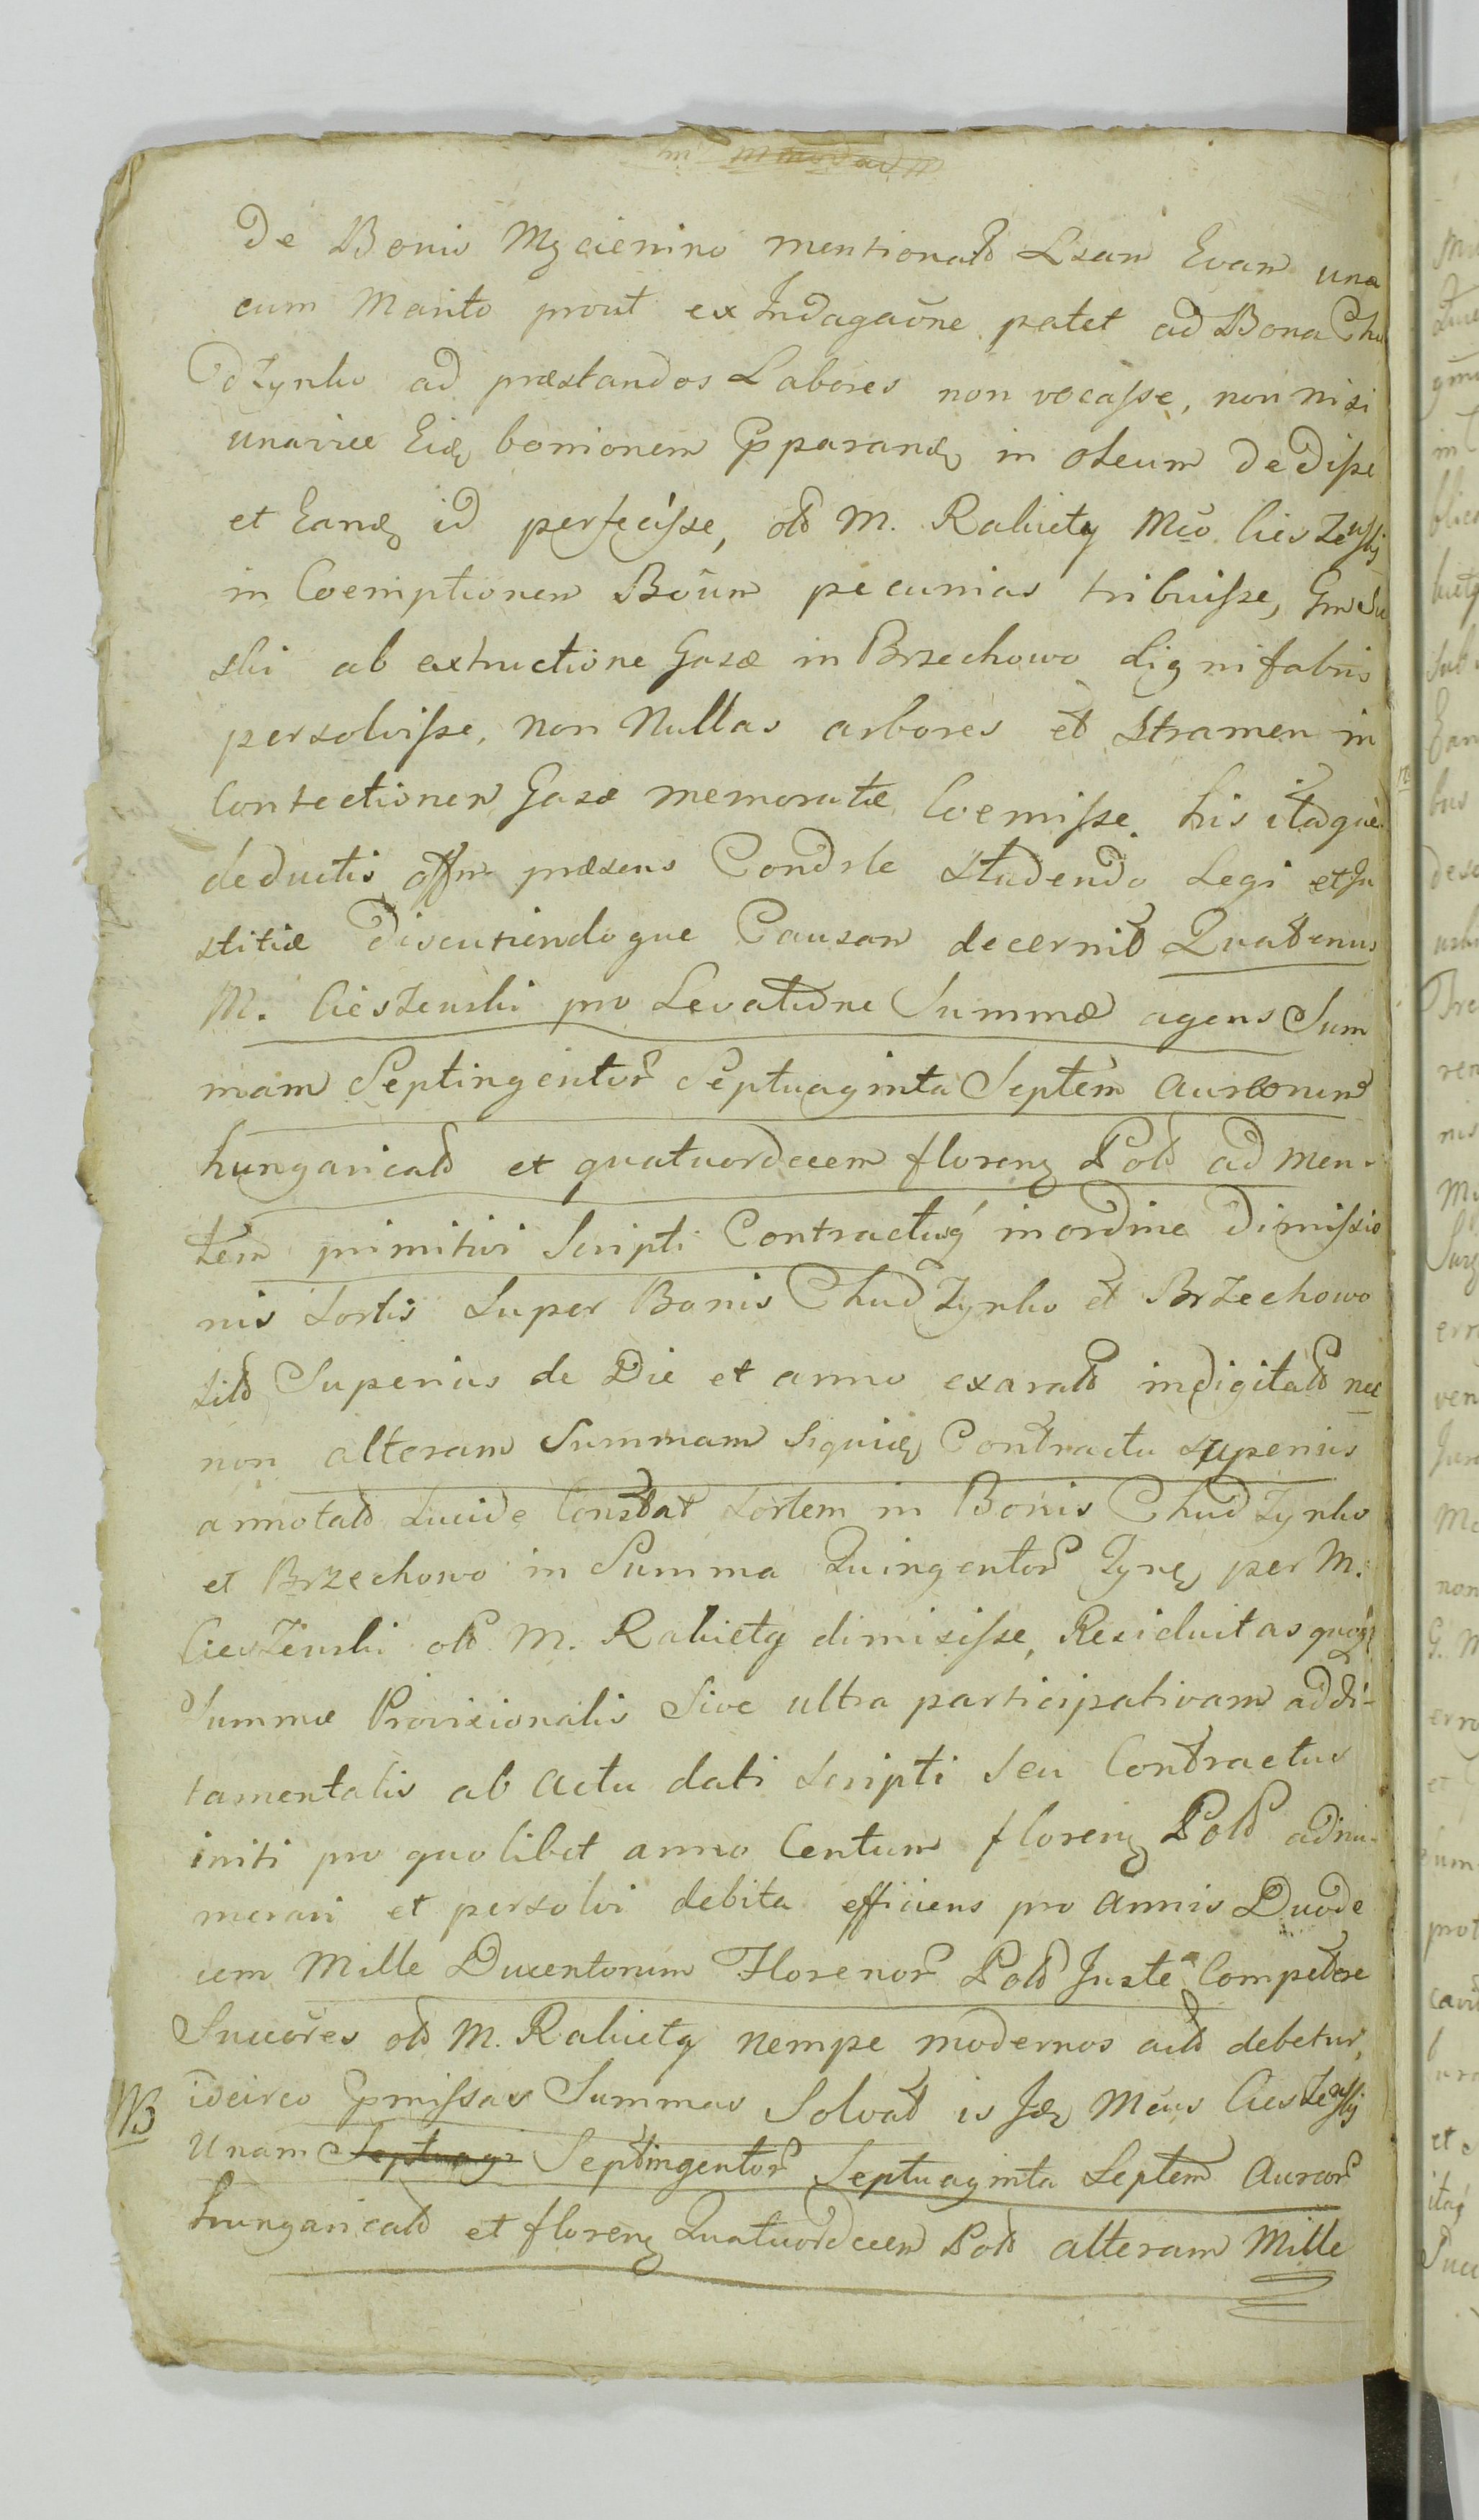 De Bonis Mycienino mentionatt Lsam Evam una
cum Marito prout ex Indagaōne patet ad Bona Chu
dzynko ad præstandos Labores non vocasse, non nisi
unavice Eidē bonionem ppparandē in oleum dedisse
et Eandē id perfecisse, olt M. Rakiety Mco Cieszenskj
in Coemptionem Boum pecunias tribuisse,
ski ab extructione Gazæ in Brzechowo Lignifabris
persolvisse, non Nullas arbores et Stramen in
Confectionem Gazæ memoratæ Coemisse. his itaque
deductis offm præsens Condsle Studendo Legi et Ju
stitiæ discutiendo que Causam decernit Quatenus
M. Cieszenski pro Levatione Summæ agens Sum
mam Septingentor Septuaginta Septem Aureorum
hungaricalt et quatuordecem floren Polt ad men-
tem primitivi Scripti Contractusq́ in ordine Dimissio
nis Sortis Super Bonis Chudzynko et Brzechowo
Sitt Superius de Die et anno exaratt indigitatt nec
non alteram Summam siquidē Contractu Superius
annotatt Lucide Constat Sortem in Bonis Chudzynko
et Brzechowo in Summa Quingentor Tynf per M.
Cieszenski olt M. Rakiety dimisisse, Residuitas quoq́
Summæ Provisionalis Sive ultra participativam addi-
tamentalis ab Actu dati Scripti Seu Contractus
initi pro quolibet anno Centum floren Polt adnu-
merari et persolvi debita efficiens pro Annis Duode
cem Mille Ducentorum Florenor Polt Juste Competere
Succōres olt M. Rakiety nempe modernos aclt debetur,
NB idcirco pmissas Summas Solvat is Idē Mcus Cieszenskj
Unam Septuagi Septingentor Septuaginta Septem Aureor
hungaricalt et floren Quatuordecem Polt alteram Mille